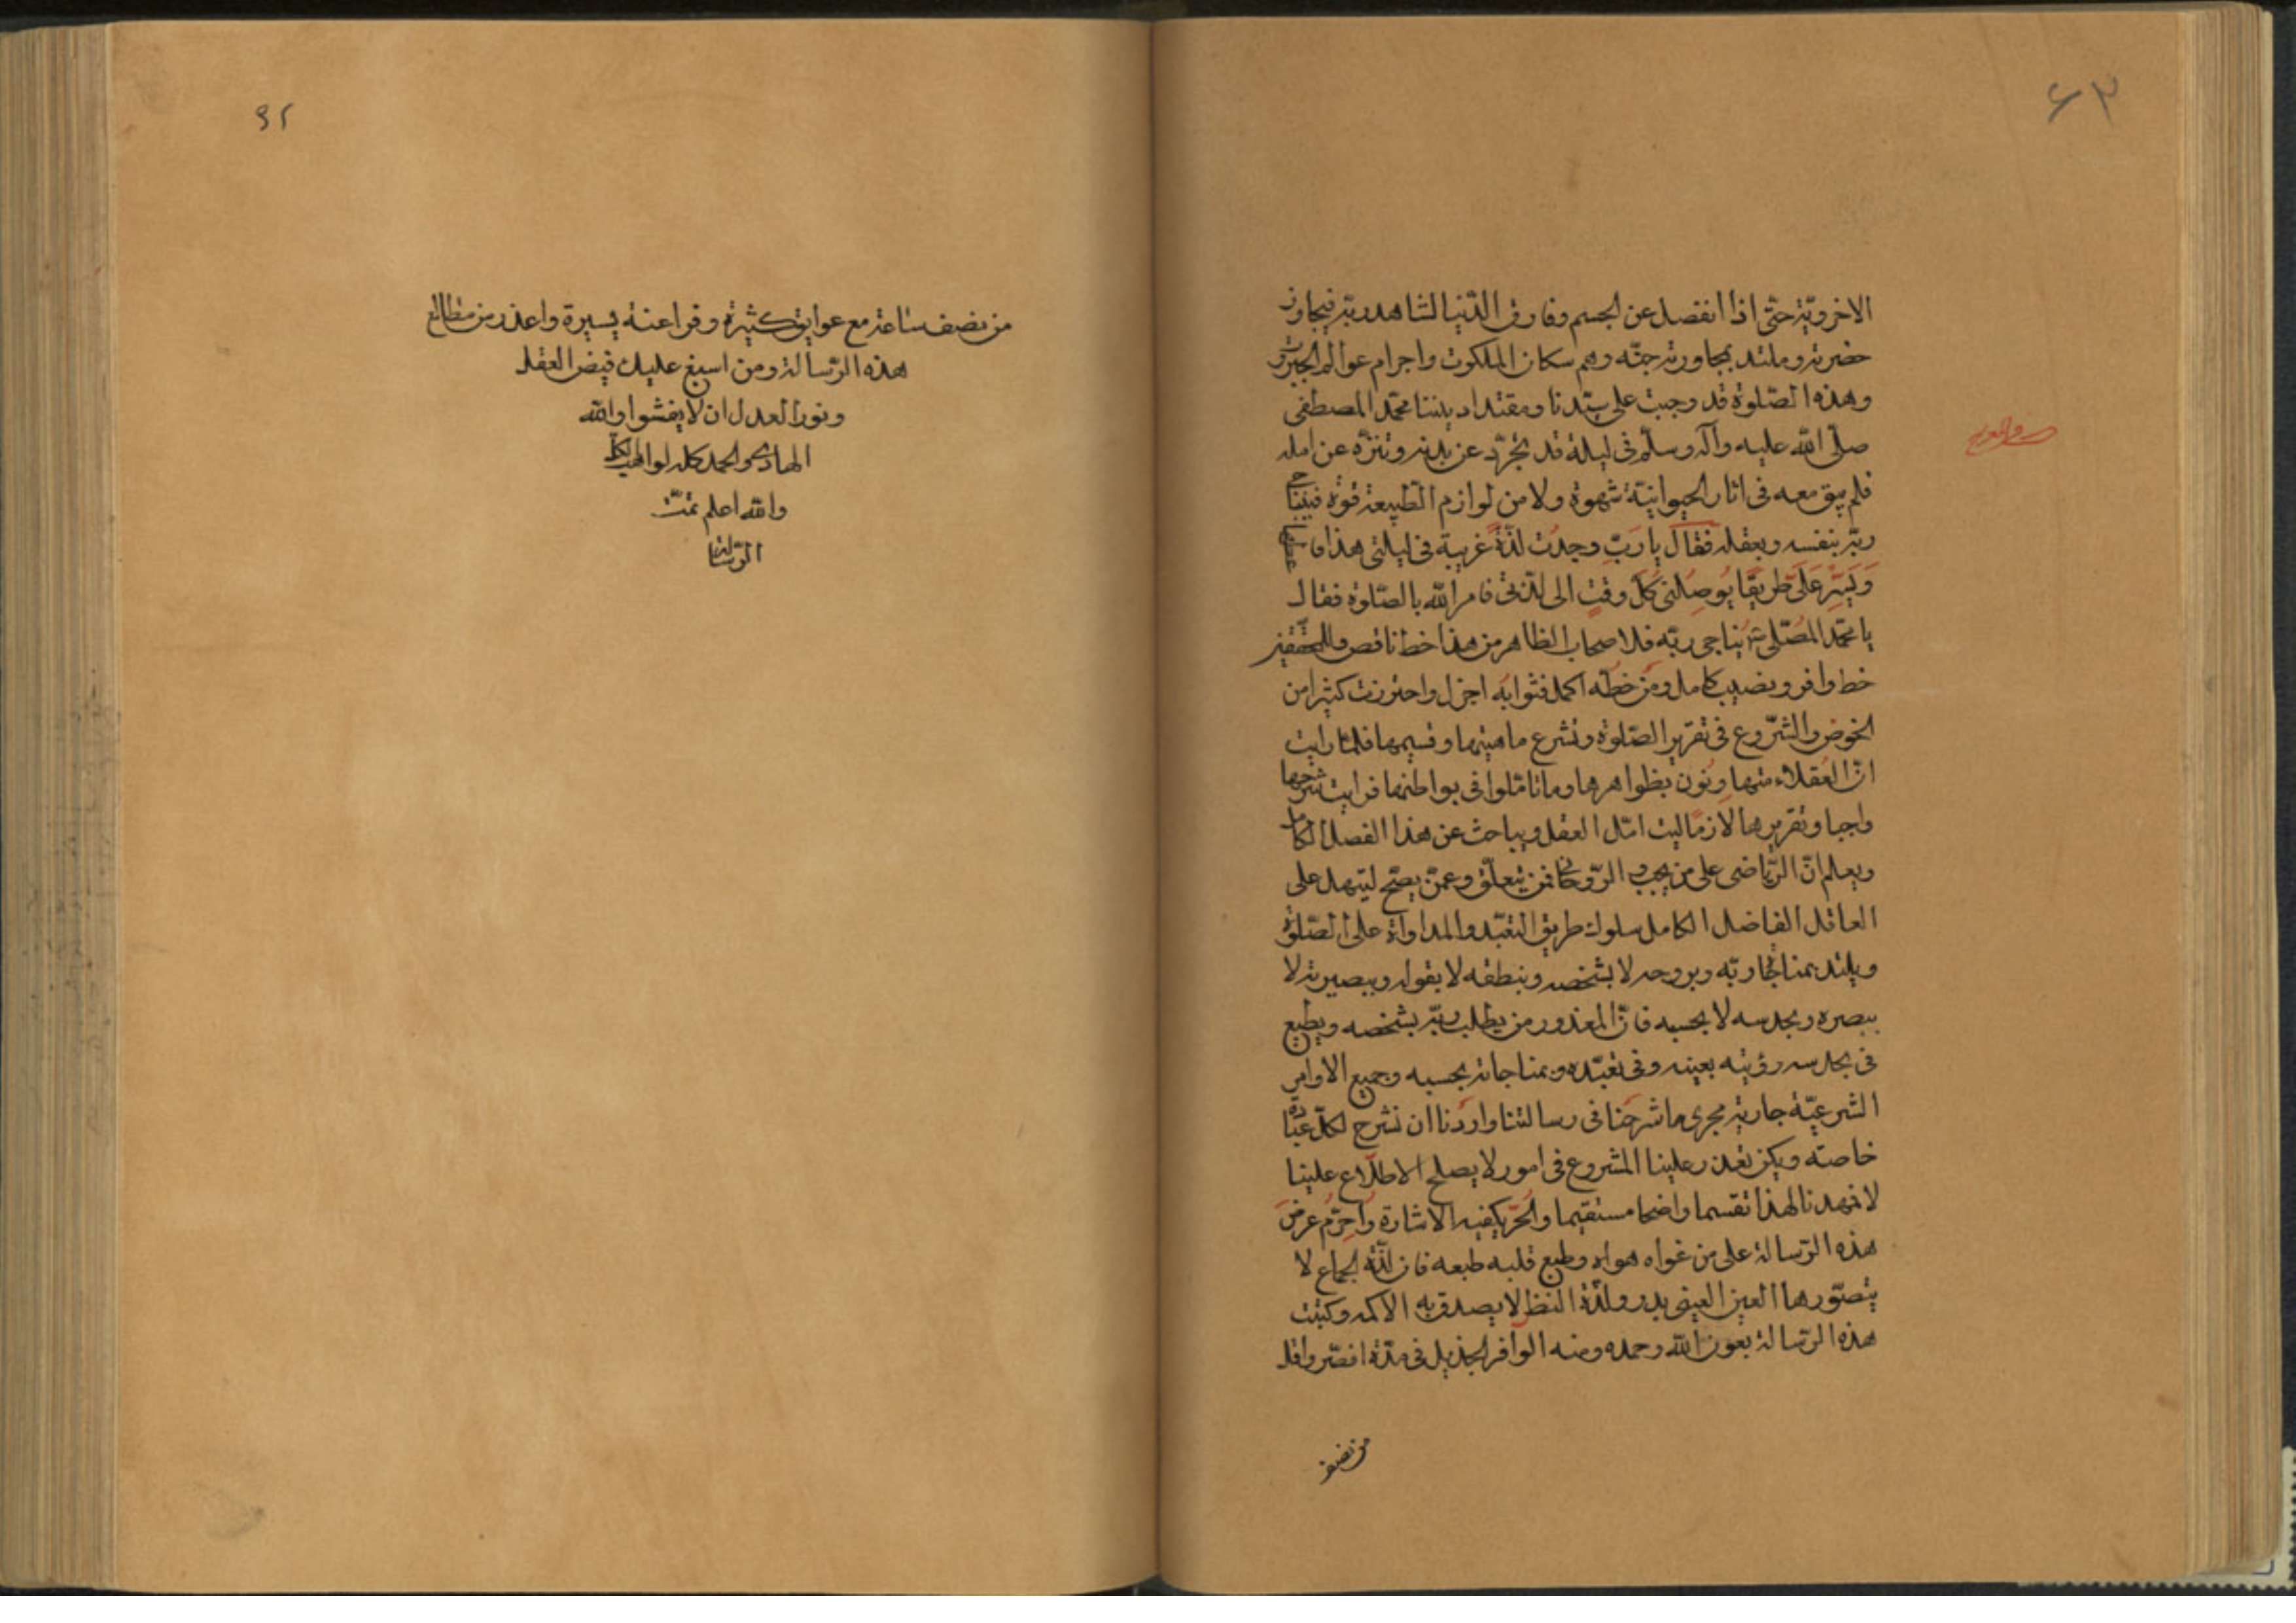 ٦٣
الاخرويّة حتّى اذا انفصل عن الجسم وفارق الدّنيا لشاهد ربّه فيجاور
حضرته وملتذ بمجاورته جنّه وهم سكان الملكوت واجرام عوالم الجبروت
وهذه الصّلوة قد وجبت على سيّدنا ومقتدا ديننا محمّد المصطفى
صلّى الله عليه وآله وسلّم فى ليلة قد تجرّد عن بدنه وتنزّه عن امله
فلم يبق معه فى اثار الحيوانيّة شهوة ولا من لوازم الطّبيعة قوّة فيناجى
ربّه بنفسه وبعقله فقال يا ربّ وجدت لذّة غريبة فى ليلتى هذه فاعطنيها
ويسّر علىّ طريقا يوصلنى كلّ وقت الى لذّتى فامر الله بالصّلوة فقال
يا محمّد المصلّى يناجى ربّه فلاصحاب الظاهر من هذا خط ناقص وللمحقّقين
خط وافر ونصيب كامل ومن خطّه اكمل فثوابه اجزل واحترزت كثيرا من
الخوض والشّروع فى تقرير الصّلوة ونشرع ماهيتها وقسيمها فلمّا رايت
انّ العقلاء متهاونون بظواهرها وما تامّلوا فى بواطنها فرايت شرحها
واجبا وتقريرها لازما ليتامّل العقل ويباحث عن هذا الفصل الكامل
ويعلم انّ الرّياضى على من يجب و الرّوحانى فمن يتعلّق وعمّن يصحّ ليسهل على
العاقل الفاضل الكامل سلوك طريق التعبّد والمداواة على الصّلوة
ويلتذ بمناجاة ربّه وبروحه لا بشخصه وبنطقه لا بقوله وببصيرته لا
ببصره وبحدسه لا بحسبه فانّ المغذور من يطلب ربّه بشخصه ويطيع
فى بحدسه رؤيته بعينه وفى تعبّده وبمناجاته بحسبه وجميع الاوامر
الشرعيّة جارية مجرى ما شرحنا فى رسالتنا واردنا ان نشرح لكلّ عبادة
خاصته ويكن تعذر علينا المشروع فى امور لا يصلح الاطلاع علينا
لا فمهدنا لهذا تقسيما واضحا مستقيما والحرّ يكفيه الاشارة واحرّم عرض
هذه الرّسالة على من غواه هواه وطبع قلبه طبعه فان لذّة الجماع لا
يتصوّرها العين العينى بدر ولذّة النظر لا يصدق به الاكمه وكتبت
هذه الرّسالة بعون الله وحمده ومنه الوافر الجزيل فى مدّة اقصر واقل
من نصف
من نصف ساعة مع عوايق كثيرة وفراعنة يسيرة واعذر من مطالع
هذه الرّسالة ومن اسبغ عليك فيض العقل
ونور العدل ان لا يفشوا والله
الهادى والحمد كله لواهب الكل
والله اعلم تمّت
الرّسالة